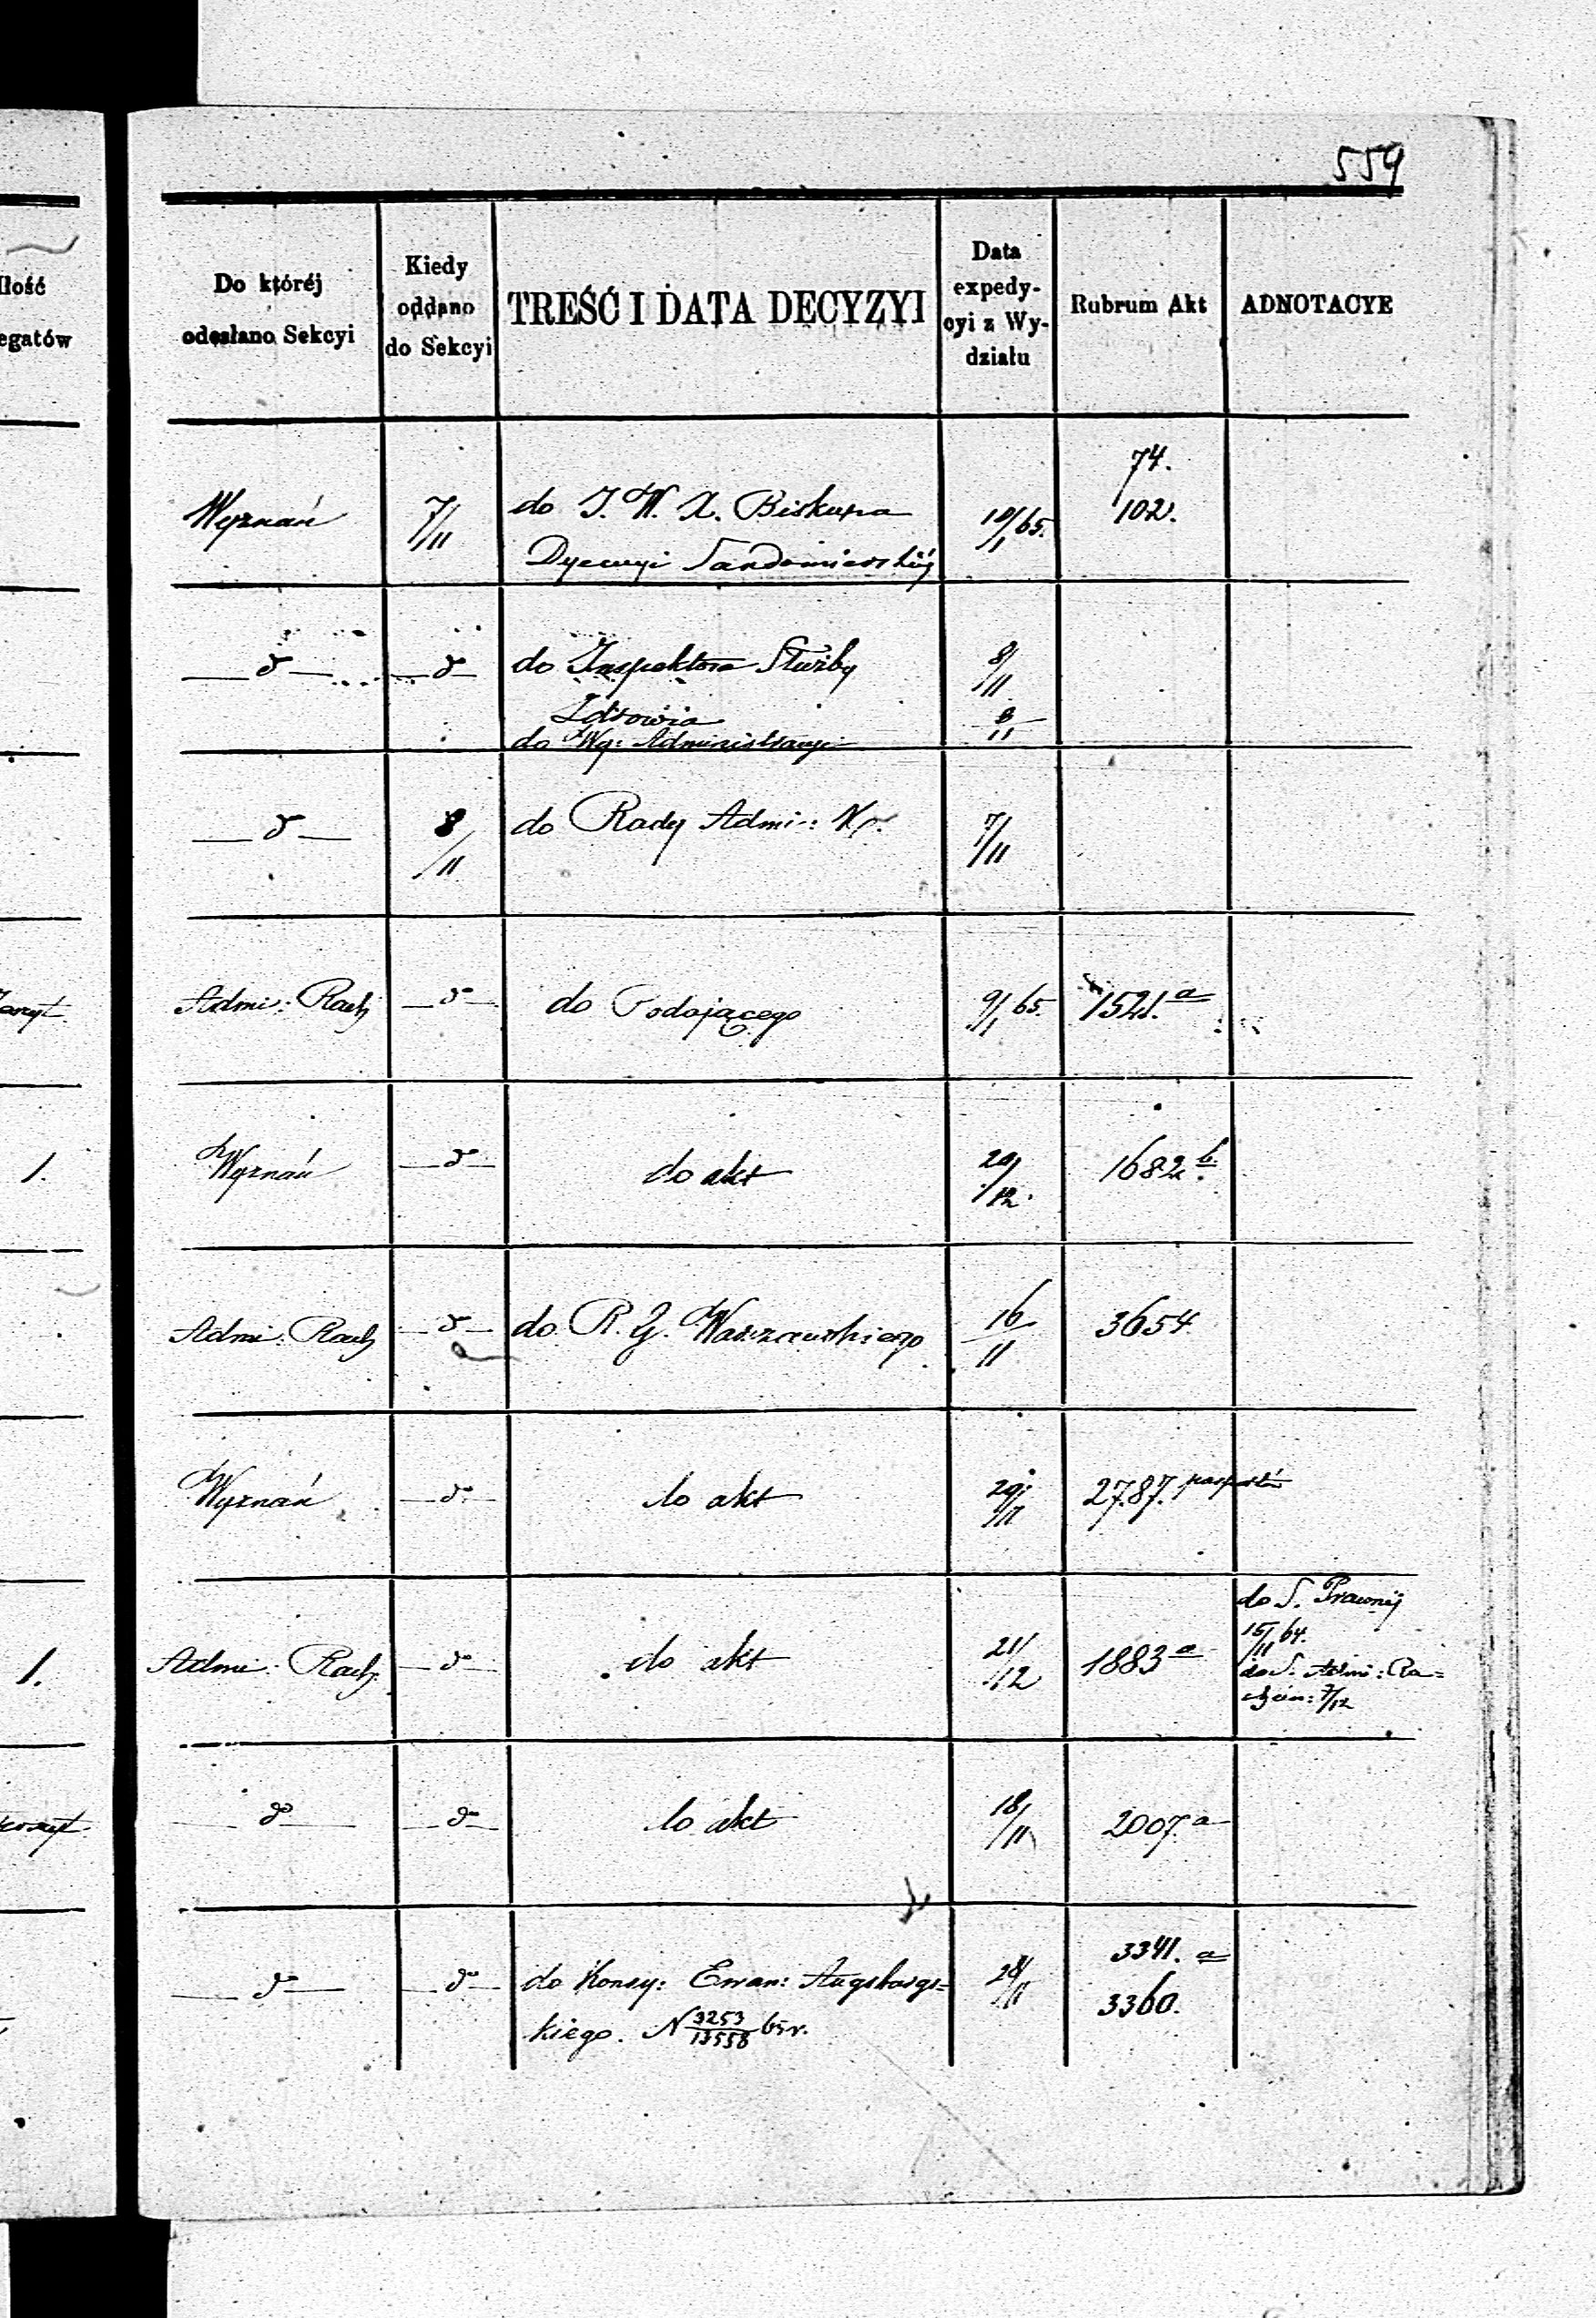 559
Ilość
egatów
Do któréj
odesłano Sekcyi
Kiedy
oddano
do Sekcyi
TREŚĆ I DATA DECYZYI
Data
expedy-
cyi z Wy-
działu
Rubrum Akt
ADNOTACYE
Wyznań 7/11 do J. W. X. Biskupa 10/1 65. 74.
102.
Dyecezyi Sandomierskiéj
— d° — — d° — do Inspektora Służby 8/11
Zdrowia 8/11
do Wy: Administracyi
— d° — 8/11 do Rady Admi: Kr. 7/11
Admi: Rach — d° — do Podającego 9/1 65. 1521. a
1. Wyznań — d° — do akt 20/12. 1682 b.
Admi: Rach — d° — do R. G. Warszawskiego 16/11 3654
Wyznań — d° — do akt 29/11 2787. paszportów
do S. Prawnéj
15/11 64.
1. Admi: Rach. — d° — do akt 21/12 1883 a do S. Admi: Ra=
chun: 7/12
— d° — — d° — do akt 18/11 2007. a
— d° — — d° — do Konsy: Ewan: Augsburgs= 28/11 3341. a
3360.
kiego. N 3253/13558 bsr.